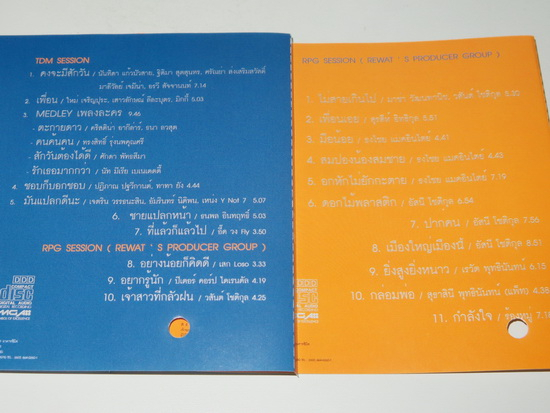 TDM SESSION
1. คงจะมีสักวัน / นันทิดา แก้วบัวสาย, ฐิติมา สุตสุนทร, ศรัณยา ส่งเสริมสวัสดิ์
มาลีวัลย์ เจมีน่า, อรวี สัจจานนท์ 7.14
2. เพื่อน / ใหม่ เจริญปุระ, เสาวลักษณ์ ลีละบุตร, มิกกี้ 5.03
3. MEDLEY เพลงละคร 9.48
- ตะกายดาว / คริสติน่า อากีล่าร์, ธนา
- คนค้นคน / ทรงสิทธิ์ รุ่งนพคุณศรี
- สักวันต้องได้ดี / ศักดา พัทธสีมา
- รักเธอมากกว่า / นัท มีเรีย เบนเนเดดตี้
4. ชอบก็บอกชอบ / ปฏิภาณ ปฐวีกานต์, ทาทา ยัง 4.44
5. มันแปลกดีนะ / เจตริน วรรธนะสิน, อัมรินทร์ นิติพน, เหน่ง Y Not 7 5.07
6. ชายแปลกหน้า / ธนพล อินทฤทธิ์ 5.03
7. ที่แล้วก็แล้วไป / อี๊ด วง Fly 3.50
RPG SESSION ( REWAT ' S PRODUCER GROUP )
8. อย่างน้อยก็คิดดี / เสก Loso 3.33
9. อยากรู้นัก / ปีเตอร์ คอร์ป ไดเรนดัล 4.19
10. เจ้าสาวที่กลัวฝน / วสันต์ โชติกุล 4.25
COMPACT
disc
DIGITAL AUDIO
MGA
RPG SESSION ( REWAT ' S PRODUCER GROUP )
1. ไม่สายเกินไป / มาซา วัฒนพานิช, วสันต์ โชติกุล 5.20
2. เพื่อนเอย / สุรสีห์ อิทธิกุล 6.51
3. มือน้อย / ธงไชย แมคอินไตย์ 4.41
4. สมปองน้องสมชาย / ธงไชย แมคอินไตย์ 4.43
5. อกหักไม่ยักกะตาย / ธงไชย แมคอินไตย์ 7.19
6. ดอกไม้พลาสติก / อัสนี โชติกุล 6.54
7. ปากคน / อัสนี โชติกุล 7.56
8. เมืองใหญ่เมืองนี้ / อัสนี โชติกุล 8.51
9. ยิ่งสูงยิ่งหนาว / เรวัต พุทธินันทน์ 6.15
10. กล่อมพ่อ / สุธาสินี พุทธินันทน์ (แพ็ท) 4.38
11. กำลังใจ / รวมหมู่ 7.18
COMPACT
disc
DIGITAL AUDIO
MGA